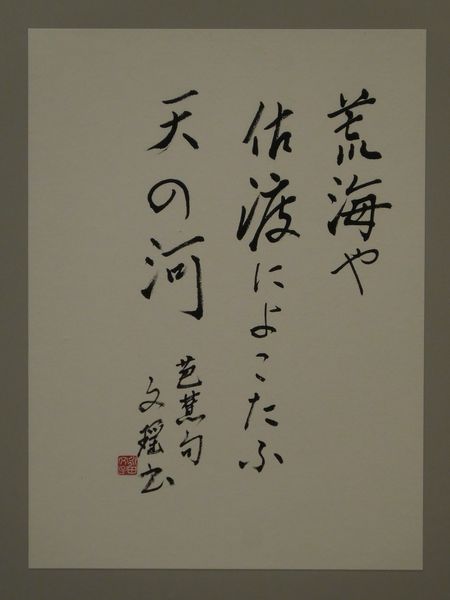 荒海や
佐渡によこたふ
天の河
芭蕉句
文瑶書